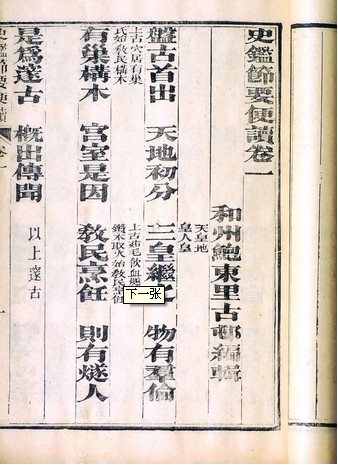 史鑑節要便讀卷一
和州鮑東里古邨編輯
天皇地
皇人皇
盤古首出 天地初分 三皇繼之 物有羣倫
上古穴居有巢
氏始敎民構木
上古茹毛飲血
鑽木取火始敎民烹飪
有巢構木 宮室是因 敎民烹飪 則有燧人
是爲邃古 概出傳聞 以上邃古
史鑑節要便讀 卷一
下一张